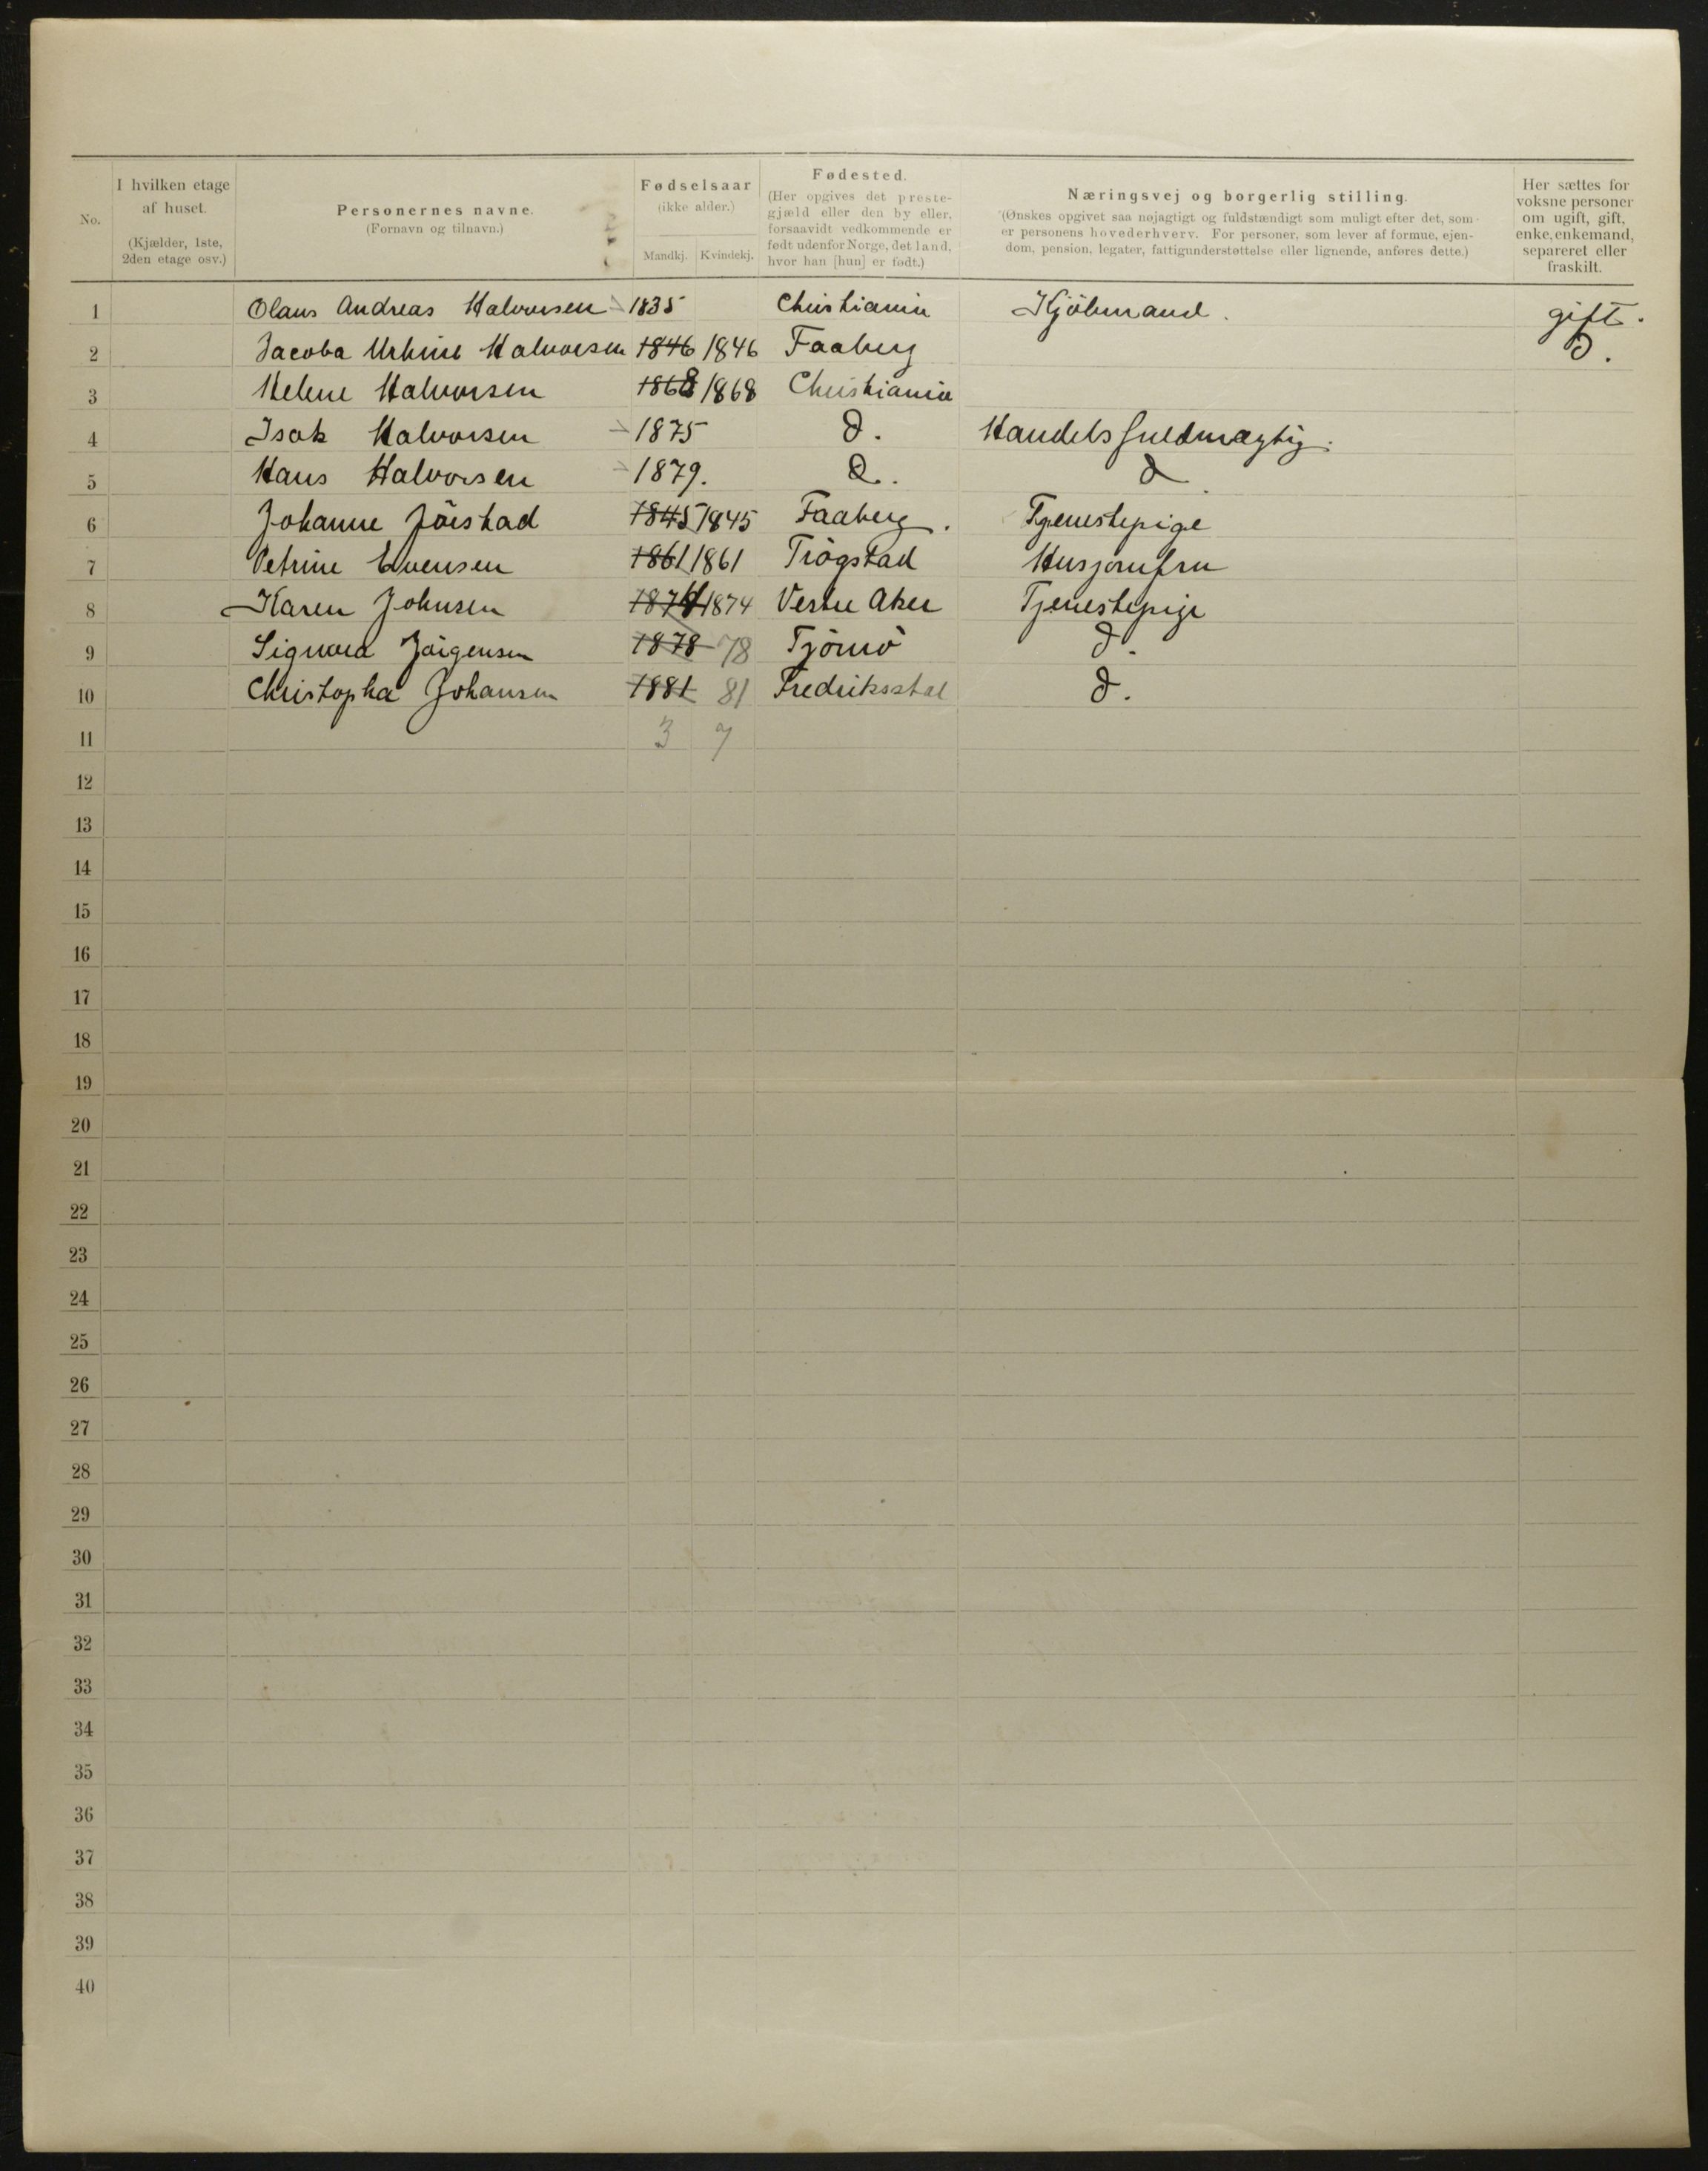 No.
I hvilken etage af huset. (Kjælder, 1ste, 2den etage osv.)
Personernes navne. (Fornavn og tilnavn.)
Fødselsaar (ikke alder.) Mandkj. Kvindekj.
Fødested. (Her opgives det prestegjæld eller den by eller, forsaavidt vedkommende er født udenfor Norge, det land, hvor han [hun] er født.)
Næringsvej og borgerlig stilling. (Ønskes opgivet saa nøjagtigt og fuldstændigt som muligt efter det, som er personens hovederhverv. For personer, som lever af formue, ejendom, pension, legater, fattigunderstøttelse eller lignende, anføres dette.)
Her sættes for voksne personer om ugift, gift, enke, enkemand, separeret eller fraskilt.
1 Olaus Andreas Halvorsen 1835 Christiania Kjöbmand. gift.
2 Jacoba Halvorsen 1846 1846 Faaberg D.
3 Helene Halvorsen 1868 1868 Christiania
4 Isak Halvorsen 1875 d. Handelsfuldmægtig.
5 Hans Halvorsen 1879. d. d
6 Johanne Jörstad 1845 1845 Faaberg. Tjenestepige
7 Petrine Evensen 1861 1861 Trögstad Husjomfru
8 Karen Johnsen 1874 1874 Vestre Aker Tjenestepige
9 Signora Jörgensen 1878 78 Tjömö d.
10 Christopha Johansen 1881 81 Fredriksstad d.
11 3 7
12
13
14
15
16
17
18
19
20
21
22
23
24
25
26
27
28
29
30
31
32
33
34
35
36
37
38
39
40